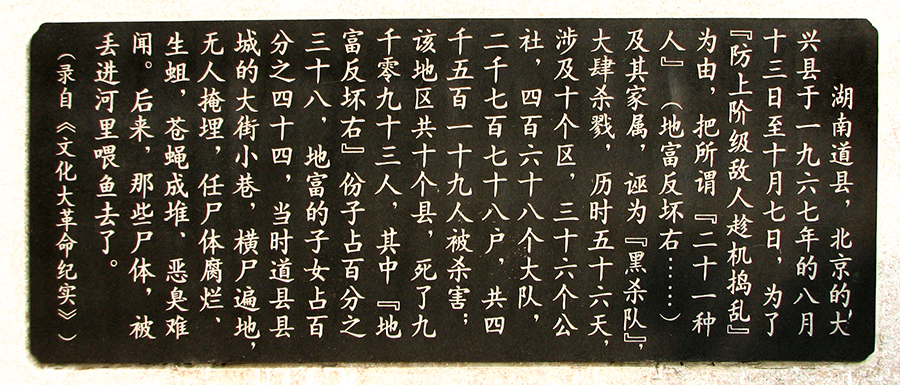 湖南道县，北京的大
兴县于一九六七年的八月
十三日至十月七日，为了
『防上阶级敌人趁机捣乱』
为由，把所谓『二十一种
人』（地富反坏右……）
及其家属，诬为『黑杀队』，
大肆杀戮，历时五十六天，
涉及十个区，三十六个公
社，四百六十八个大队，
二千七百七十八户，共四
千五百一十九人被杀害；
该地区共十个县，死了九
千零九十三人，其中『地
富反坏右』份子占百分之
三十八，地富的子女占百
分之四十四，当时道县县
城的大街小巷，横尸遍地，
无人掩埋，任尸体腐烂、
生蛆，苍蝇成堆、恶臭难
闻。后来，那些尸体，被
丢进河里喂鱼去了。
（录自《文化大革命纪实》）